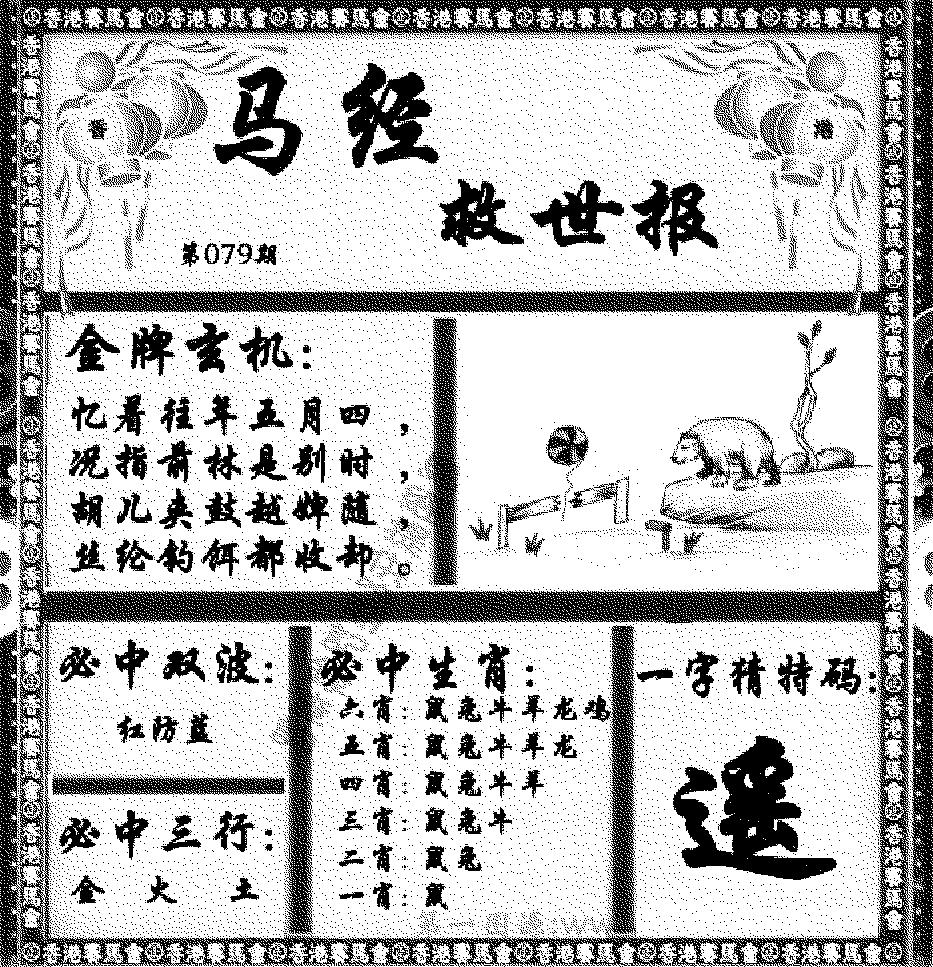 香港賽馬會 香港賽馬會 香港賽馬會 香港賽馬會 香港賽馬會 香港賽馬會 香港賽馬會
香
港
马经
救世报
第079期
金牌玄机：
忆着往年五月四，
况指前林是别时，
胡儿夹鼓越婢随，
丝纶钓饵都收却。
必中双波：
红防蓝
必中三行：
金 火 土
必中生肖：
六肖：鼠兔牛羊龙鸡
五肖：鼠兔牛羊龙
四肖：鼠兔牛羊
三肖：鼠兔牛
二肖：鼠兔
一肖：鼠
一字猜特码：
遥
香港賽馬會 香港賽馬會 香港賽馬會 香港賽馬會 香港賽馬會 香港賽馬會 香港賽馬會